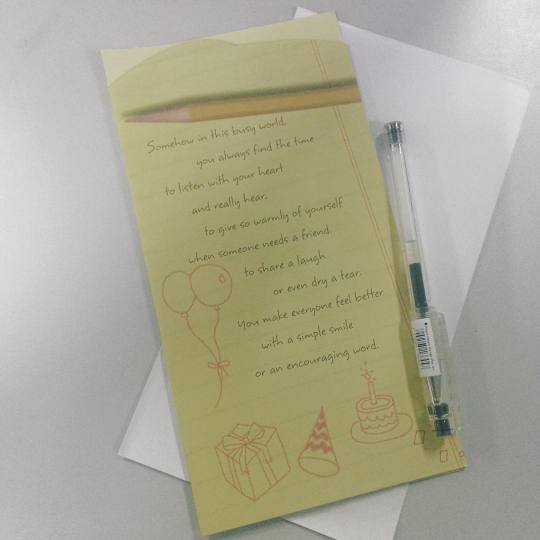 Somehow in this busy world,
you always find the time
to listen with your heart
and really hear.
to give so warmly of yourself
when someone needs a friend.
to share a laugh
or even dry a tear.
You make everyone feel better
with a simple smile
or an encouraging word.